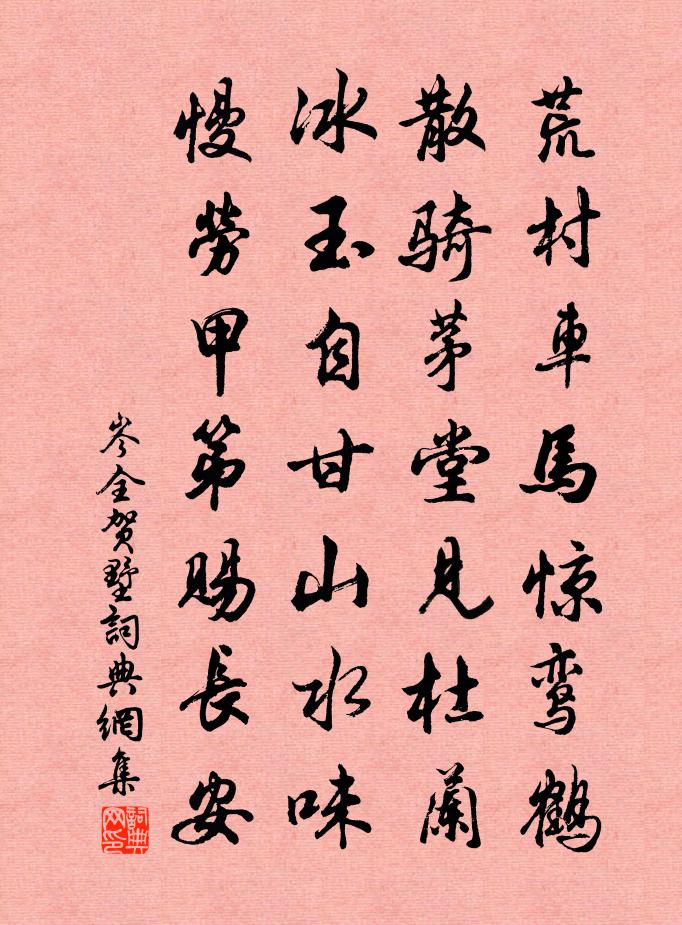 荒村車馬惊鸾鶴
散騎茅堂見杜蘭
冰玉自甘山水味
慢勞甲第賜長安
岑全贺墅詞典網集
詞典网印